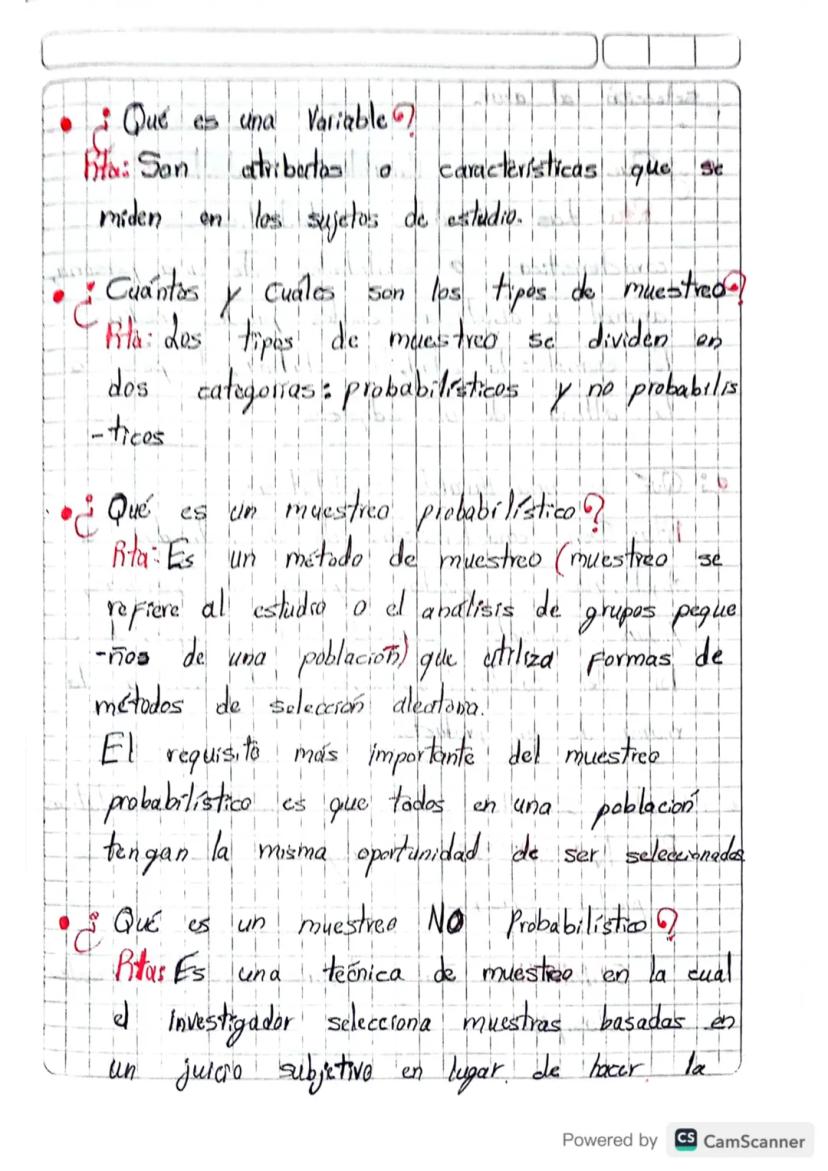 • ¿Qué es una Variable?
Rta: Son atributos o características que se
miden en los sujetos de estudio.
• ¿Cuántos y Cuáles son los tipos de muestreo?
Rta: Los tipos de muestreo se dividen en
dos categorías: probabilísticos y no probabilis
-ticos
• ¿Qué es un muestreo probabilístico?
Rta: Es un método de muestreo (muestreo se
refiere al estudio o el análisis de grupos peque
-ños de una población) que utiliza formas de
métodos de selección aleatoria.
El requisito más importante del muestreo
probabilístico es que todos en una población
tengan la misma oportunidad de ser seleccionados
• ¿Qué es un muestreo NO Probabilístico?
Rta: Es una técnica de muestreo en la cual
el investigador selecciona muestras basadas en
un juicio subjetivo en lugar de hacer la
Powered by CS CamScanner